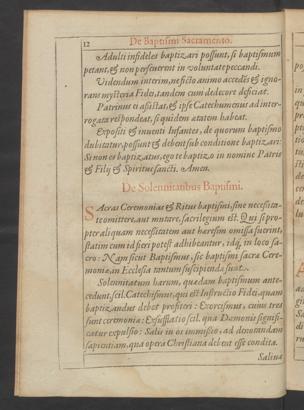 12
De Baptismi Sacramento.
Adulti infideles baptizari possunt, si baptismum
petant, & non perseverent in voluntate peccandi.
Videndum interim, ne ficto animo accedēs & igno-
rans mysteria Fidei, tandem cum dedecore deficiat.
Patrinus ei assistat, & ipse Catechumenus ad inter-
rogata respondeat, si quidem ætatem habeat.
Expositi & inventi Infantes, de quorum baptismo
dubitatur, possunt & debent sub conditione baptizari:
Si non es baptizatus, ego te baptizo in nomine Patris
& Filij & Spiritus sancti. Amen.
De Solennitatibus Baptismi.
Sacras Ceremonias & Ritus baptismi, sine necessita-
te omittere, aut mutare, sacrilegium est. Qui si pro-
pter aliquam necessitatem aut hæresim omissa fuerint,
statim cum id fieri potest adhibeantur, idq́, in loco sa-
cro: Nam sicut Baptismus, sic baptismi sacræ Cere-
moniæ, in Ecclesia tantum suscipienda sunt.
Solennitatum harum, quædam baptismum ante-
cedunt, scil. Catechismus, qui est Instructio Fidei, quam
baptizandus debet profiteri: Exorcismus, cuius tres
sunt ceremoniæ: Exsufflatio scil. qua Dæmonis signifi-
catur expulsio: Salis in os immissio, ad denotandam
sapientiam, qua opera Christiana debent esse condita.
Saliua